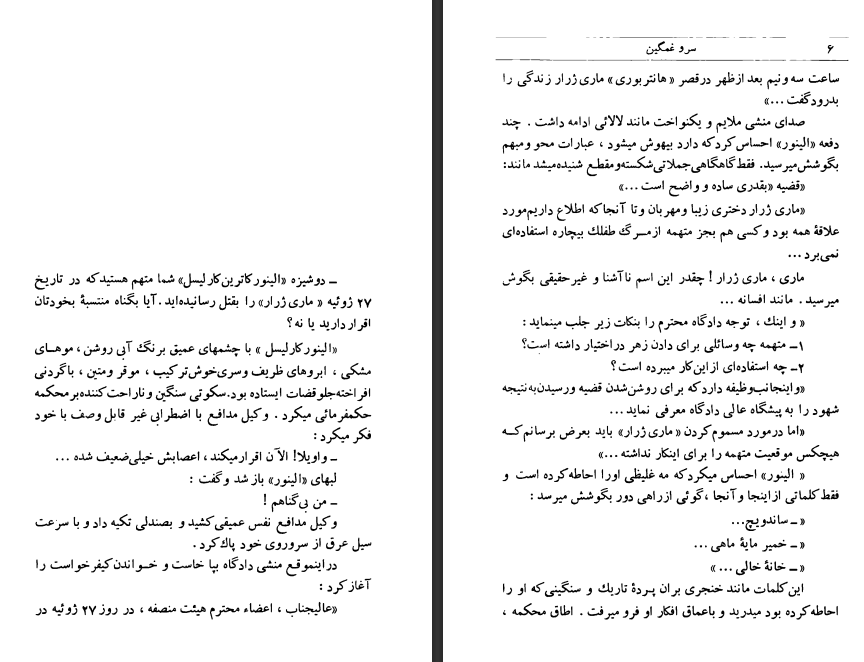 ـ دوشیزه «الینور کاترین کارلیسل» شما متهم هستید که در تاریخ
۲۷ ژوئیه « ماری ژرار» را بقتل رسانیده‌اید. آیا بگناه منتسبهٔ بخودتان
اقرار دارید یا نه؟
«الینور کارلیسل » با چشمهای عمیق برنگ آبی روشن ، موهـای
مشکی ، ابروهای ظریف وسری خوش ترکیب ، موقر ومتین ، باگردنی
افراخته جلو قضات ایستاده بود. سکوتی سنگین و ناراحت کننده بر محکمه
حکمفرمائی میکرد . وکیل مدافع با اضطرابی غیر قابل وصف با خود
فکر میکرد :
ـ واویلا! الآن اقرار میکند ، اعصابش خیلی ضعیف شده ...
لبهای «الینور» باز شد وگفت :
ـ من بی‌گناهم !
وکیل مدافع نفس عمیقی کشید و بصندلی تکیه داد و با سرعت
سیل عرق از سروروی خود پاك کرد .
دراینموقع منشی دادگاه بپا خاست و خـواندن کیفر خواست را
آغاز کرد :
«عالیجناب ، اعضاء محترم هیئت منصفه ، در روز ۲۷ ژوئیه در
۶ سرو غمگین
ساعت سه ونیم بعد از ظهر در قصر « هانتربوری » ماری ژرار زندگی را
بدرود گفت ...»
صدای منشی ملایم و یکنواخت مانند لالائی ادامه داشت . چند
دفعه «الینور» احساس کرد که دارد بیهوش میشود ، عبارات محو و مبهم
بگوشش میرسید. فقط گاهگاهی جملاتی شکسته و مقطع شنیده میشد مانند:
«قضیه «بقدری ساده و واضح است ...»
«ماری ژرار دختری زیبا ومهربان وتا آنجا که اطلاع داریم مورد
علاقهٔ همه بود و کسی هم بجز متهمه ازمـرگ طفلك بیچاره استفاده‌ای
نمی‌برد ...
ماری ، ماری ژرار ! چقدر این اسم ناآشنا و غیرحقیقی بگوش
میرسید . مانند افسانه ...
« و اینك ، توجه دادگاه محترم را بنکات زیر جلب مینماید :
۱ـ متهمه چه وسائلی برای دادن زهر دراختیار داشته است؟
۲ـ چه استفاده‌ای از این کار میبرده است ؟
«واینجانب وظیفه دارد که برای روشن شدن قضیه و رسیدن به نتیجه
شهود را به پیشگاه عالی دادگاه معرفی نماید ...
«اما درمورد مسموم کردن « ماری ژرار» باید بعرض برسانم کـه
هیچکس موقعیت متهمه را برای اینکار نداشته ...»
« الینور» احساس میکرد که مه غلیظی اورا احاطه کرده است و
فقط کلماتی از اینجا و آنجا ، گوئی از راهی دور بگوشش میرسد :
« ـ ساندویچ...
« ـ خمیر مایهٔ ماهی ...
« ـ خانهٔ خالی ... »
این کلمات مانند خنجری بران پردهٔ تاریك و سنگینی که او را
احاطه کرده بود میدرید و باعماق افکار او فرو میرفت . اطاق محکمه ،